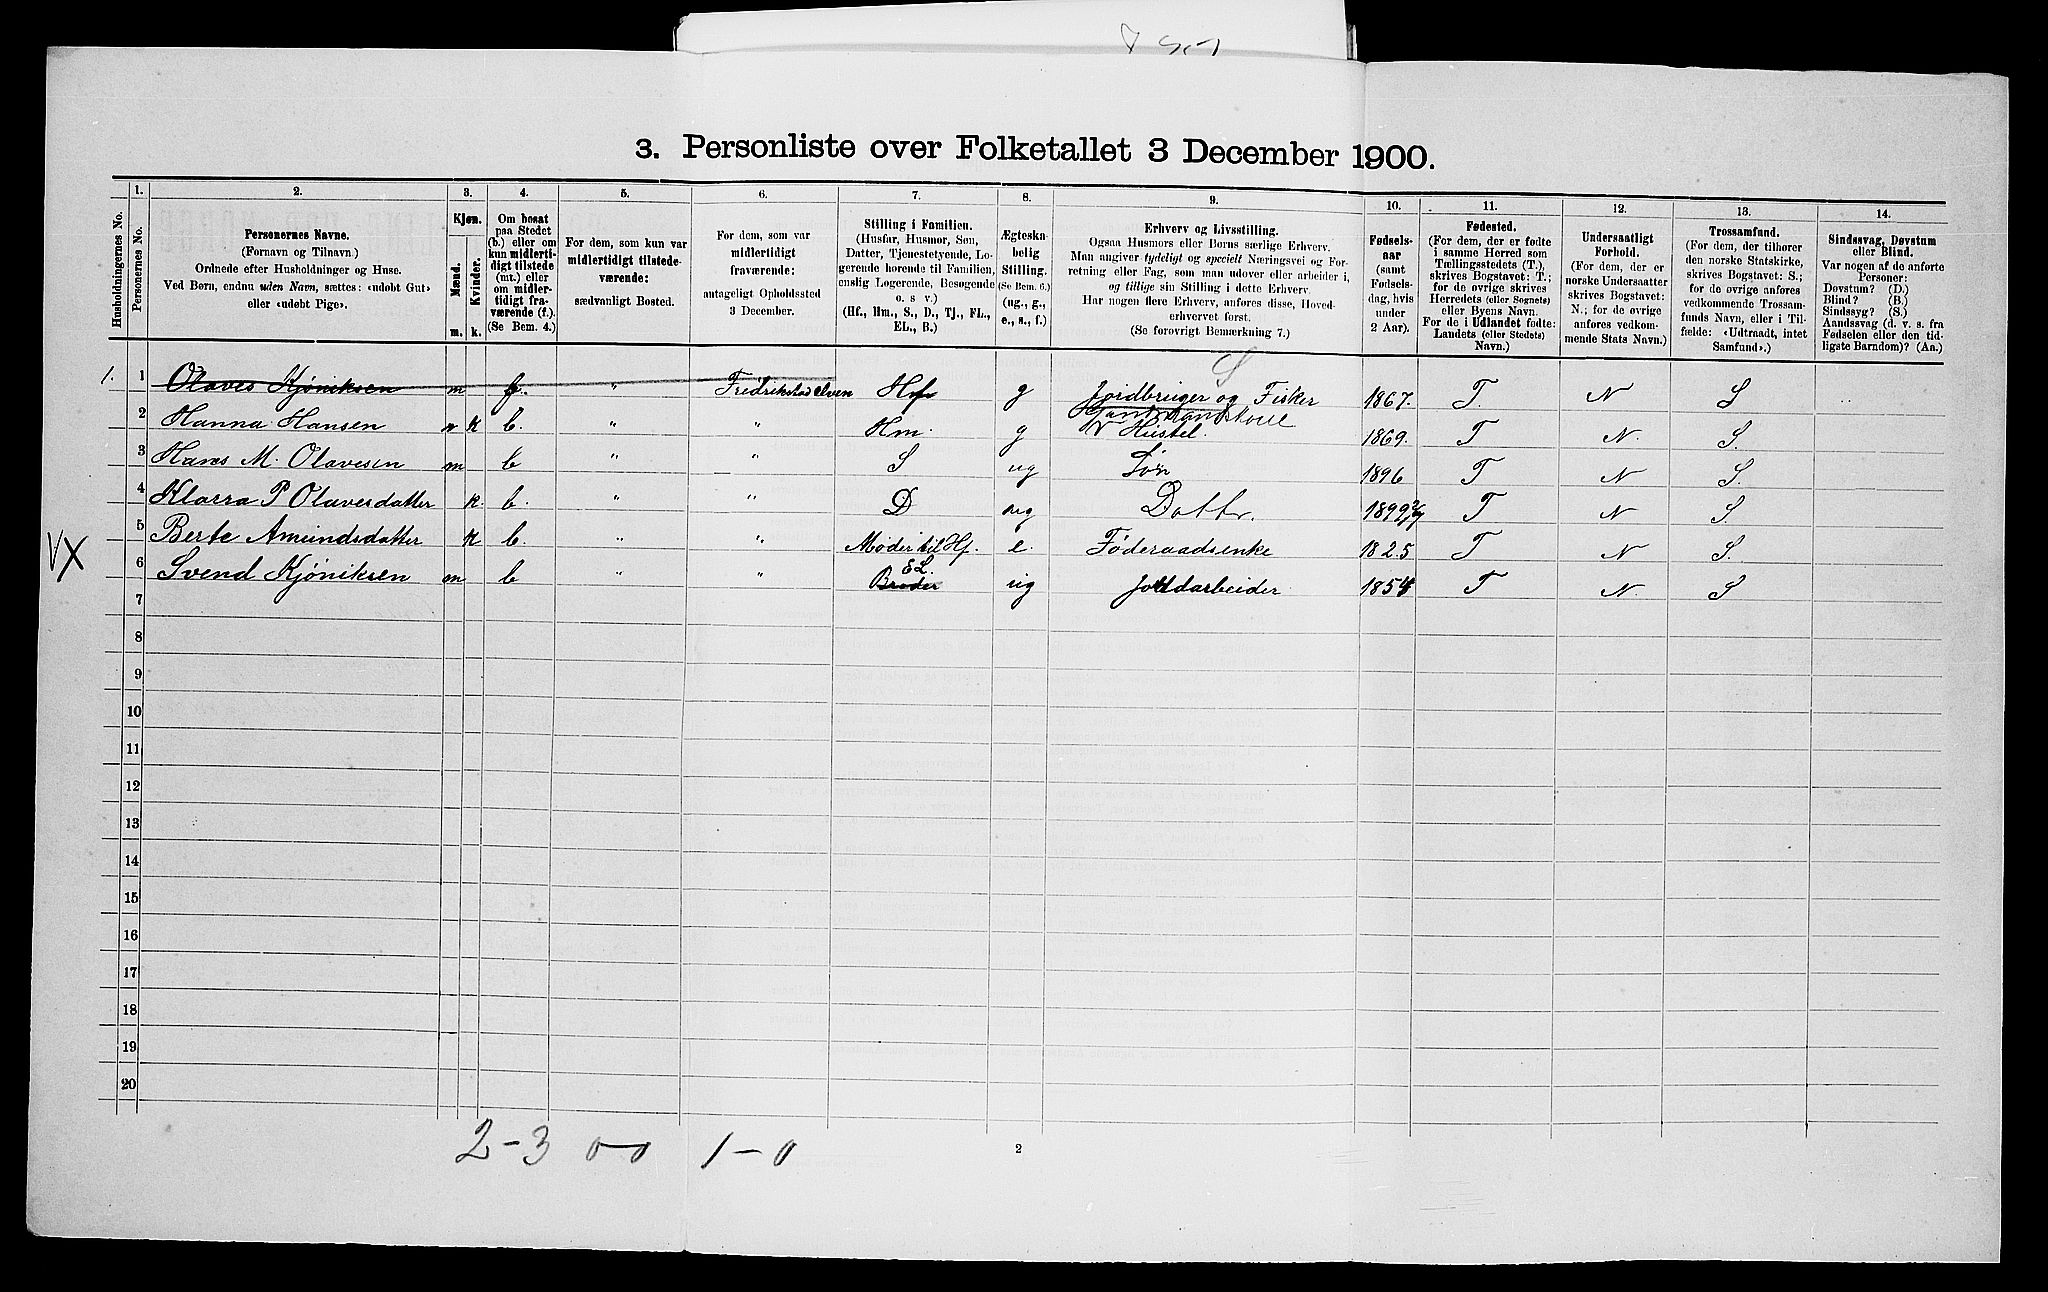 3. Personliste over Folketallet 3 December 1900.
Husholdningernes No.
1.
Personernes No.
2.
Personernes Navne.
(Fornavn og Tilnavn.)
Ordnede efter Husholdninger og Huse.
Ved Børn, endnu uden Navn, sættes: «udøbt Gut»
eller «udøbt Pige».
3.
Kjøn.
Mænd.
Kvinder.
m. k.
4.
Om bosat
paa Stedet
(b.) eller om
kun midlerti-
digt tilstede
(mt.) eller
om midler-
tidigt fra-
værende (f.).
(Se Bem. 4.)
5.
For dem, som kun var
midlertidigt tilstede-
værende:
sædvanligt Bosted.
6.
For dem, som var
midlertidigt
fraværende:
antageligt Opholdssted
3 December.
7.
Stilling i Familien.
(Husfar, Husmor, Søn,
Datter, Tjenestetyende, Lo-
gerende hørende til Familien,
enslig Logerende, Besøgende
o. s v.)
(Hf., Hm., S., D., Tj., FL.,
EL., B.)
8.
Ægteska-
belig
Stilling.
(Se Bem. 6.)
(ug., g.,
e., s., f.)
9.
Erhverv og Livsstilling.
Ogsaa Husmors eller Børns særlige Erhverv.
Man angiver tydeligt og specielt Næringsvei og For-
retning eller Fag, som man udøver eller arbeider i,
og tillige sin Stilling i dette Erhverv.
Har nogen flere Erhverv, anføres disse, Hoved-
erhvervet først.
(Se forøvrigt Bemerkning 7.)
10.
Fødsels-
aar
(samt
Fødsels-
dag, hvis
under
2 Aar).
11.
Fødested.
(For dem, der er fødte
i samme Herred som
Tællingsstedets (T.),
skrives Bogstavet: T.;
for de øvrige skrives
Herredets (eller Sognets)
eller Byens Navn.
For de i Udlandet fødte:
Landets (eller Stedets)
Navn.)
12.
Undersaatligt
Forhold.
(For dem, der er
norske Undersaatter
skrives Bogstavet:
N.; for de øvrige
anføres vedkom-
mende Stats Navn.)
13.
Trossamfund.
(For dem, der tilhører
den norske Statskirke,
skrives Bogstavet: S.;
for de øvrige anføres
vedkommende Trossam-
funds Navn, eller i Til-
fælde: «Udtraadt, intet
Samfund».)
14.
Sindssvag, Døvstum
eller Blind.
Var nogen af de anførte
Personer:
Døvstum? (D.)
Blind? (B.)
Sindssyg? (S.)
Aandssvag (d. v. s. fra
Fødselen eller den tid-
ligste Barndom)? (Aa.)
S
1. 1 Olaves Kjøniksen m f. " Fredrikstadelven Hf g Jordbruger og Fisker 1867. T. N S
2 Hanna Hansen k b. " " Hm. g Hustel. 1869. T N. S.
3 Hans M. Olavesen m b " " S ug Søn 1896 T N S.
4 Klarra P Olavesdatter k. b. " " D ug Dattr. 1899 2/7 T N S.
5 Berte Amundsdatter k b. " " Moder til Hf. e. Føderaadsenke 1825 T N S.
EL.
VX 6 Svend Kjøniksen m b " " Broder ug Jorddarbeider 1854 T N S
7
8
9
10
11
12
13
14
15
16
17
18
19
20
2-3 0-0 1-0
2